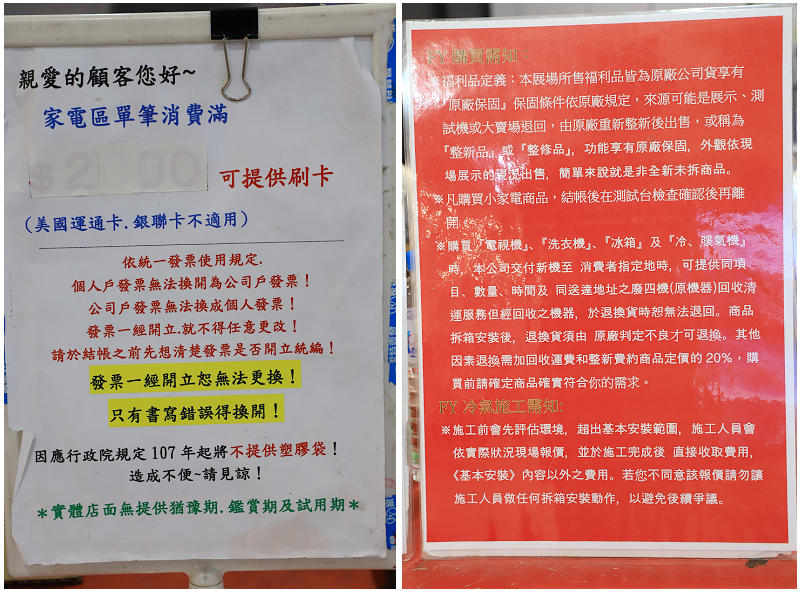 親愛的顧客您好~
家電區單筆消費滿
$2 00
可提供刷卡
(美國運通卡.銀聯卡不適用)
依統一發票使用規定.
個人戶發票無法換開為公司戶發票！
公司戶發票無法換成個人發票！
發票一經開立.就不得任意更改！
請於結帳之前先想清楚發票是否開立統編！
發票一經開立恕無法更換！
只有書寫錯誤得換開！
因應行政院規定 107 年起將不提供塑膠袋！
造成不便~請見諒！
＊實體店面無提供猶豫期.鑑賞期及試用期＊
FY 購買需知：
※福利品定義：本展場所售福利品皆為原廠公司貨享有
『原廠保固』保固條件依原廠規定，來源可能是展示、測
試機或大賣場退回，由原廠重新整新後出售，或稱為
『整新品』或『整修品』，功能享有原廠保固，外觀依現
場展示的現況出售，簡單來說就是非全新未拆商品。
※凡購買小家電商品，結帳後在測試台檢查確認後再離
開。
※購買『電視機』、『洗衣機』、『冰箱』及『冷、暖氣機』
時，本公司交付新機至 消費者指定地時，可提供同項
目、數量、時間及 同送達地址之廢四機(原機器)回收清
運服務但經回收之機器，於退換貨時恕無法退回。商品
拆箱安裝後，退換貨須由 原廠判定不良才可退換。其他
因素退換需加回收運費和整新費約商品定價的 20%，購
買前請確定商品確實符合你的需求。
FY 冷氣施工需知:
※施工前會先評估環境，超出基本安裝範圍，施工人員會
依實際狀況現場報價，並於施工完成後 直接收取費用，
《基本安裝》內容以外之費用。若您不同意該報價請勿讓
施工人員做任何拆箱安裝動作，以避免後續爭議。